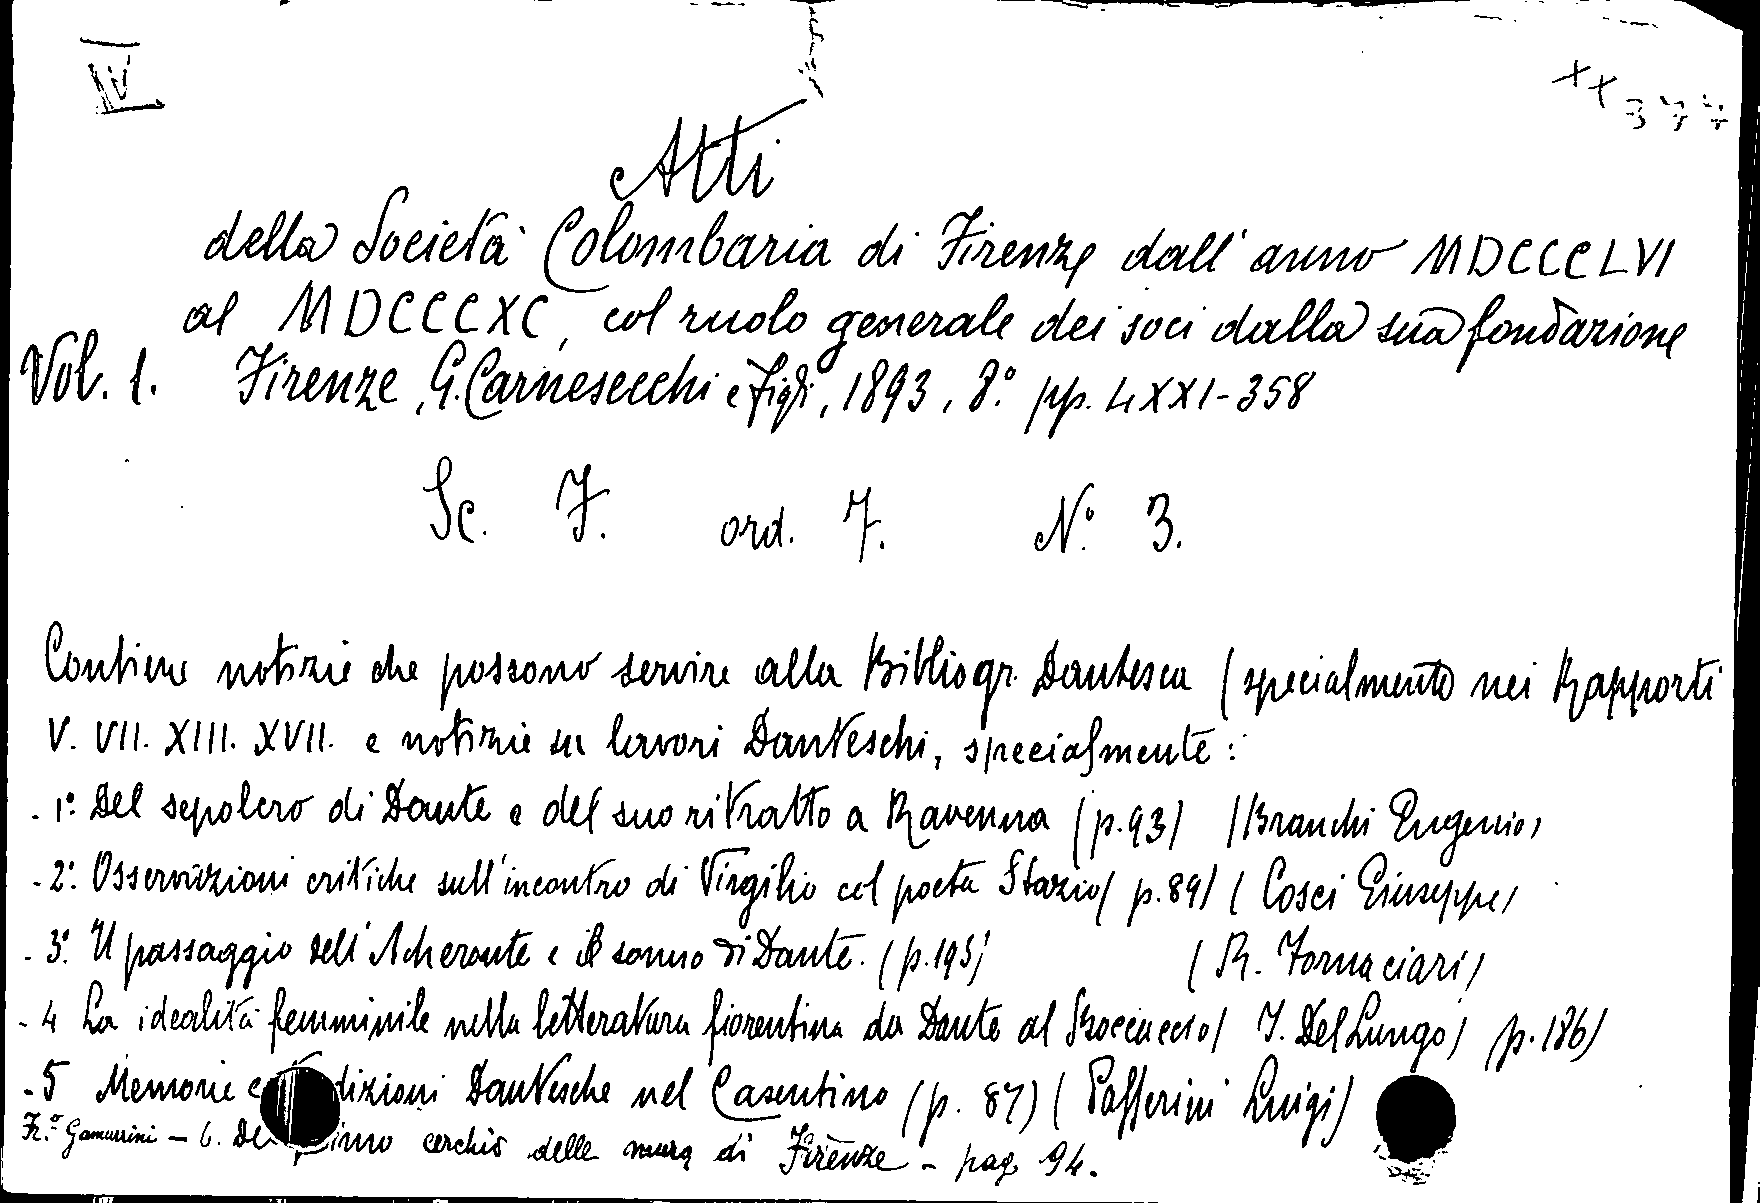 IV
XX 377
Atti
della Società Colombaria di Firenze dall'anno MDCCCLVI
al MDCCCXC, col ruolo generale dei soci dalla sua fondazione
Vol. 1. Firenze, G. Carnesecchi e figli, 1893, 8.° pp. LXXI-358
Sc. I. ord. 7. N.° 3.
Contiene notizie che possono servire alla Bibliogr. Dantesca (specialmente nei Rapporti
V. VII. XIII. XVII. e notizie su lavori Danteschi, specialmente:
- 1.° Del sepolcro di Dante e del suo ritratto a Ravenna (p.93) (Branchi Eugenio)
- 2.° Osservazioni critiche sull'incontro di Virgilio col poeta Stazio (p.89) (Cosci Giuseppe)
- 3.° Il passaggio dell'Acheronte e il sonno di Dante. (p.193) (R. Fornaciari)
- 4 La idealità femminile nella letteratura fiorentina da Dante al Boccaccio (I. Del Lungo) (p.186)
- 5 Memorie e dizioni Dantesche nel Casentino (p. 87) (Passerini Luigi)
Fr.co Gamurrini - 6. Del cerchio delle mura di Firenze - pag 94.